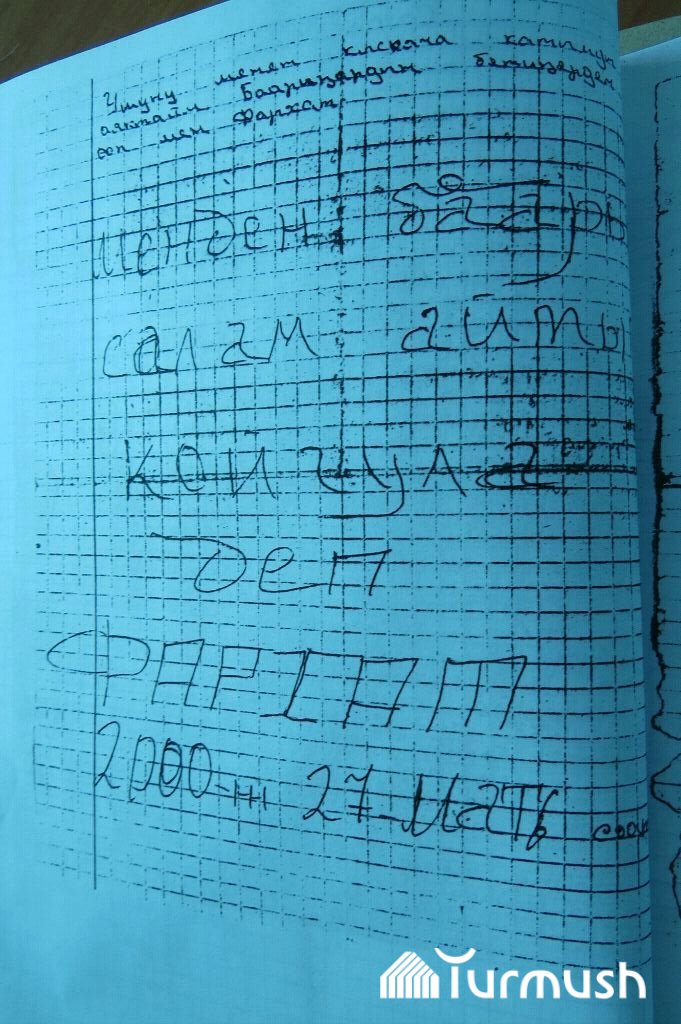 Ушуну менен кыскача катымды
аяктайм Баарыңардын бетиңерден
өөп мен Фархат.
менден баары
салам айты
койгула
деп
ФАРХАТ
2000-ж 27-март
Turmush